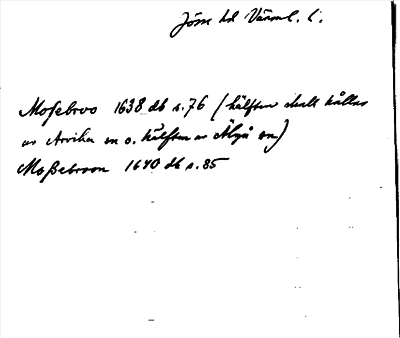 Jösse hd Värml. l.
Mossebroo 1638 db s. 76 (hälften skall hållas
av Arvika sn o. hälften av Älgå sn)
Mossebroon 1640 db s. 85